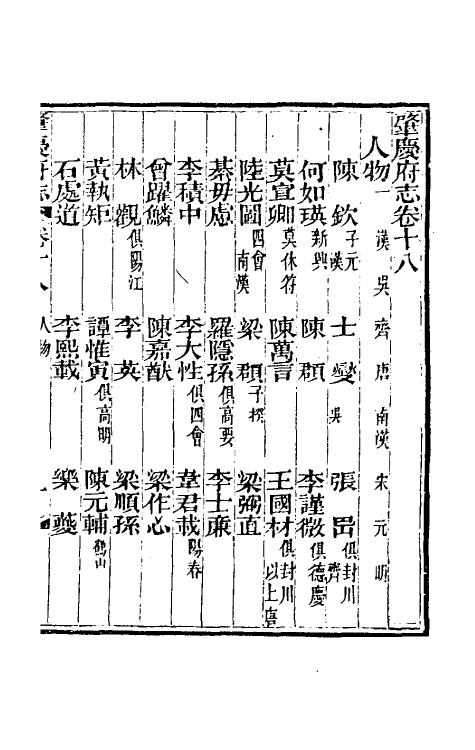 肇慶府志卷十八
人物一 漢 吳 齊 唐 南漢 宋 元 明
陳欽 子元 漢 士燮 吳 張昂 俱封川 齊
何如瑛 新興 陳頵 李謹微 俱德慶
莫宣卿 莫休符 陳萬言 王國材 俱封川 以上唐
陸光圖 四會 南漢 梁頵 子㮣 梁弼直
綦毋慮 羅隱孫 俱高要 李士廉
李積中 李大性 俱四會 韋君載 陽春
曾躍鱗 陳嘉猷 梁作心
林觀 俱陽江 李英 梁順孫
黃執矩 譚惟寅 俱高明 陳元輔 鶴山
石處道 李熙載 樂夔
肇慶府志 卷十八 人物 一